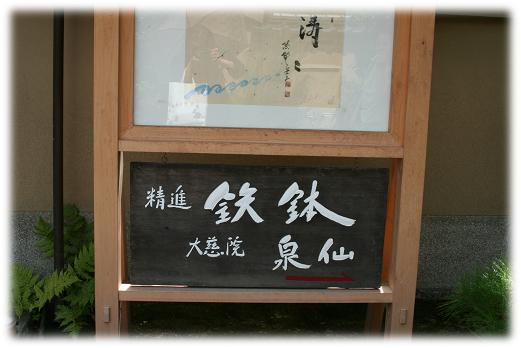 濤
精進 鉄鉢
大慈院 泉仙